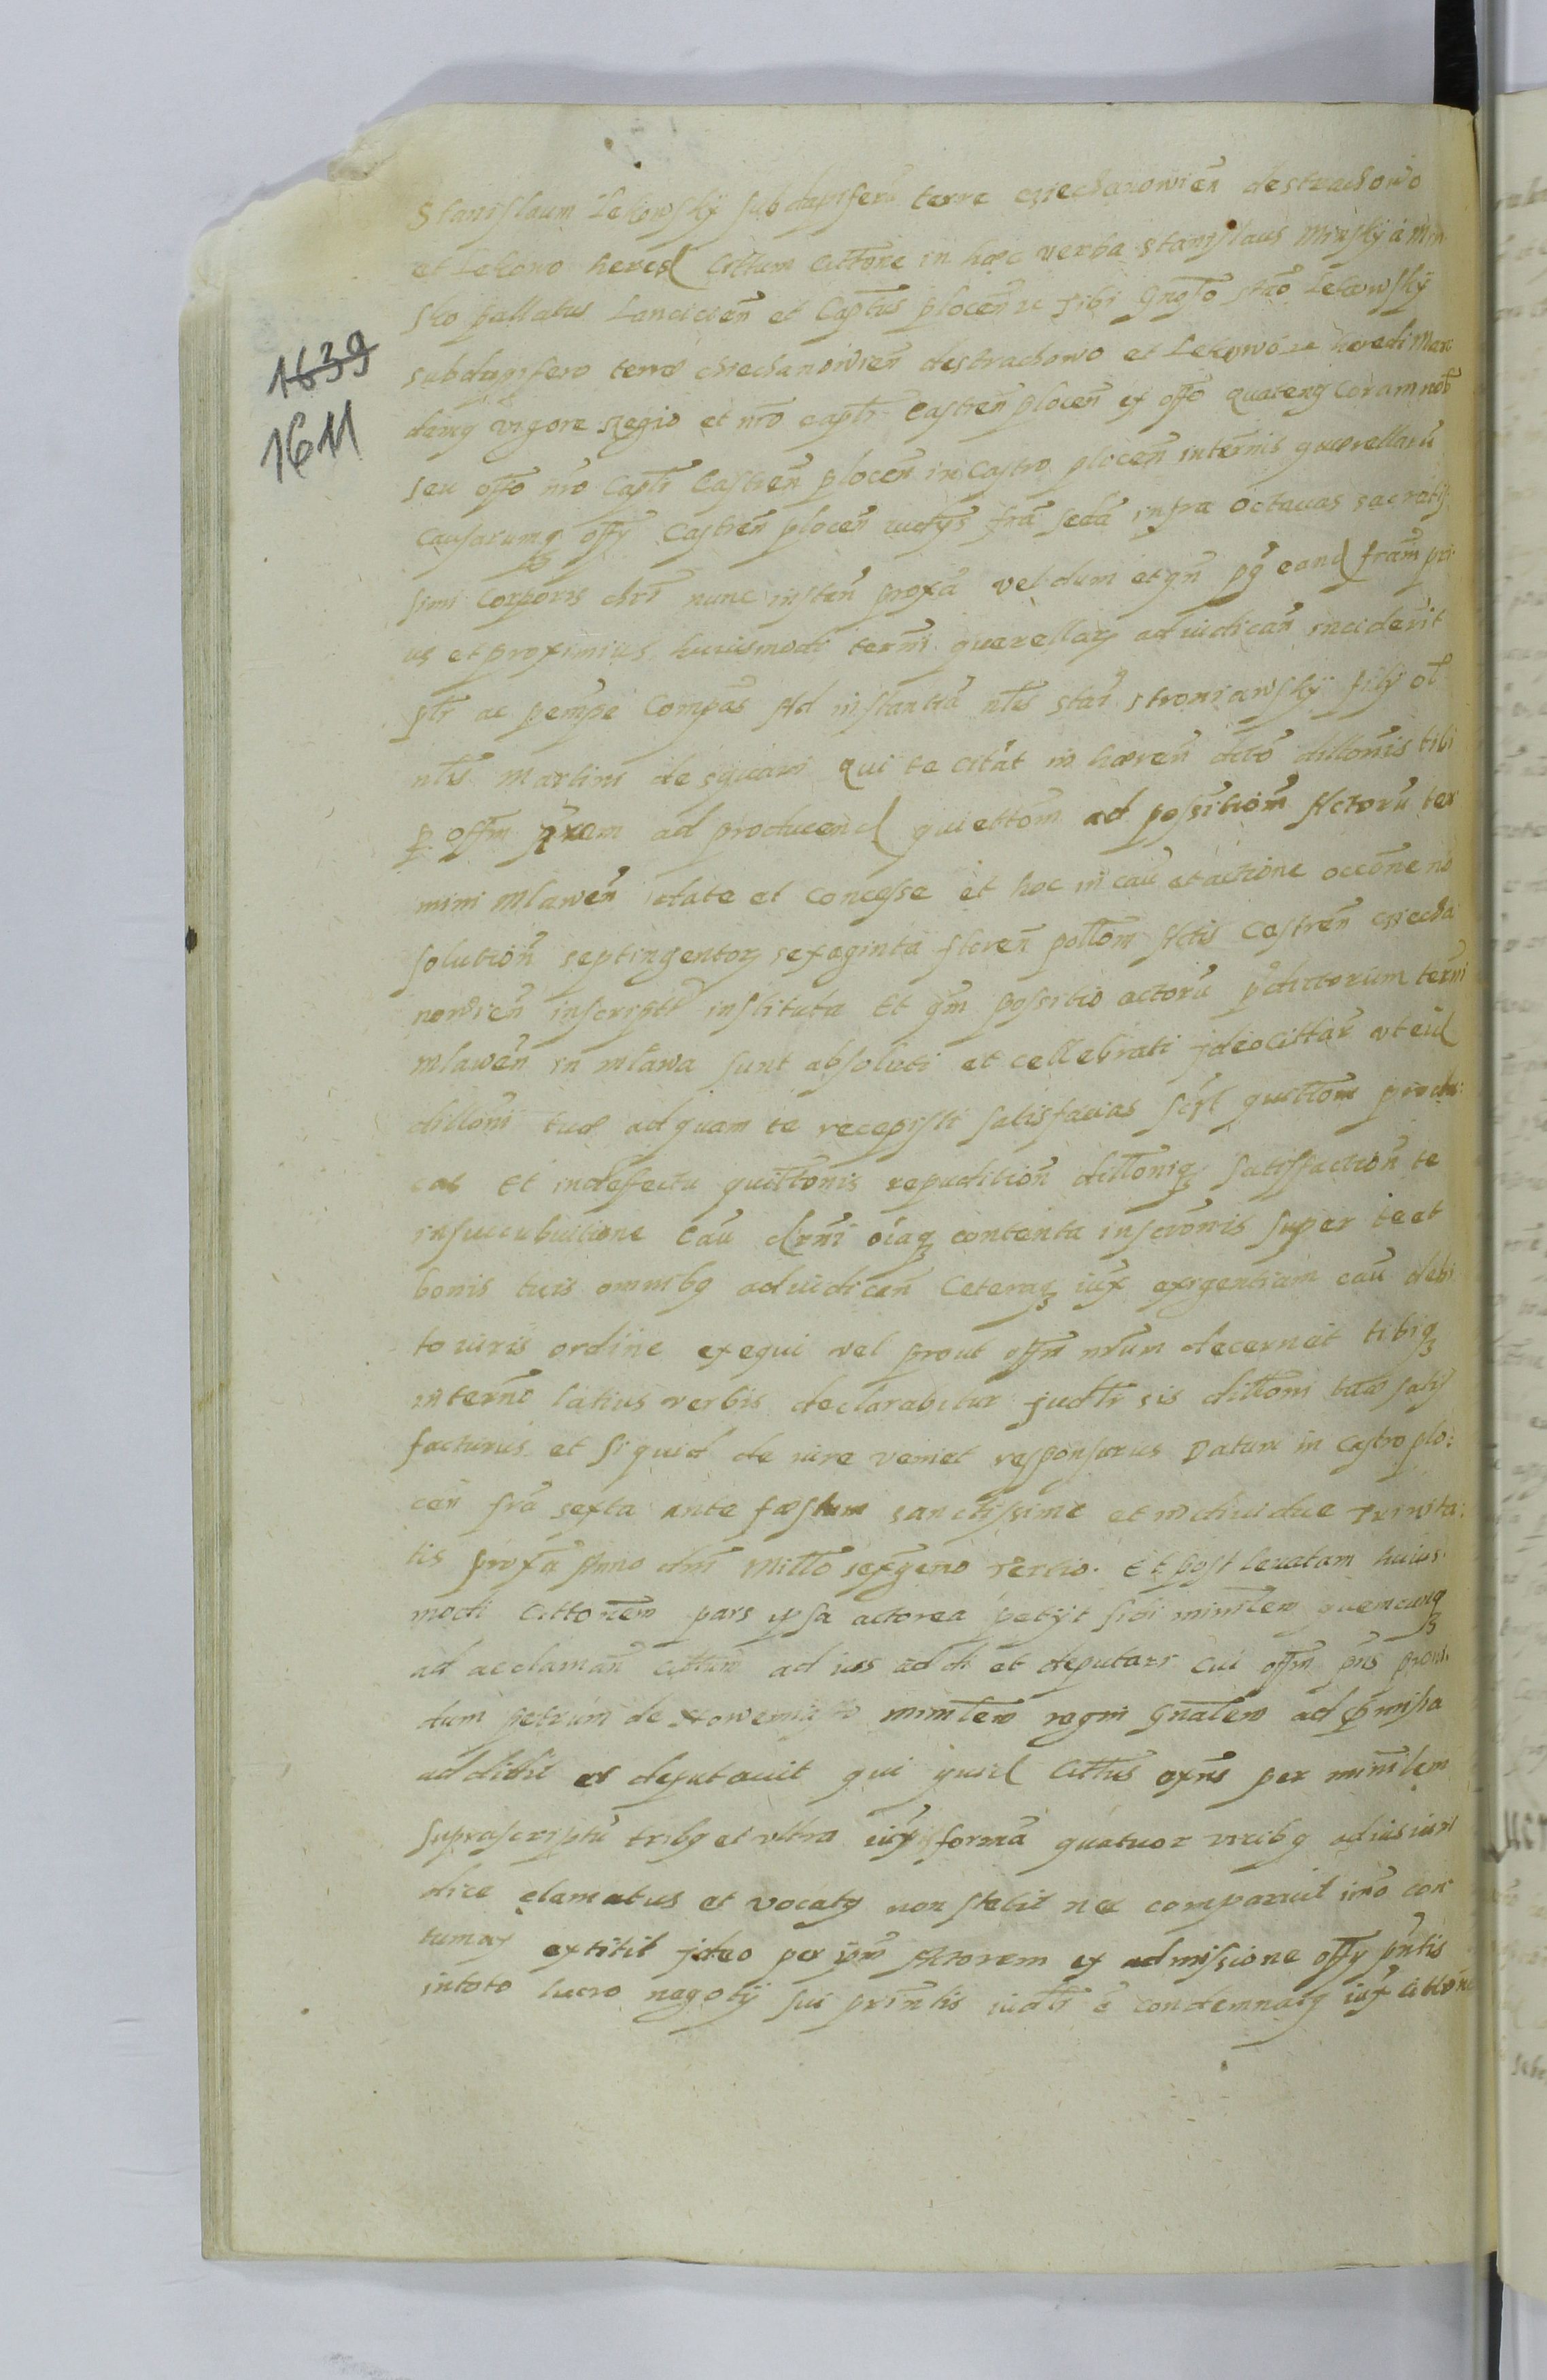 Stanislaum Lekowsky subdapiferū terre cziechanowień de strachowo
et Lekowo hered Cittum Cittone in hæc verba Stanislaus Minsky à Min
sko pallatus Lancicień et Captus plocēn̄ zc Tibi Gnoso stāo Lekowsky
subdapifero terræ cziechanowień de strachowo et Lekowo zc heredi Man
damq vigore Regio et nro capli Castreń ploceń ex offo quatenq Coram nob
seu offo nro Capli Castreń ploceń in Castro ploceń interńis quærellarū
Causarumq offy Castreń ploceń iudys fra secda infra octauas sacratis
simi Corporis chri nunc insteń proxa vel dum et qn pq eand fram pri
us et proximius huiusmodi termi querellarz adiudicań inciderit
plr ac pempe Compas Ad instantiā nlis stai stroniawsky fily ol
nlis Martini de squari qui te citat in hæreń dito dillonis tibi
p. offm pnem ad producend quiettom ad possitiom Actorū ter
mini Mlaweń date et concesse et hoc in cau et actione occone no
solutioń septingentorz sexaginta floreń pollom Actis Castreń cziecha
nowień inscript instituta Et qm possitio actorū pdictorum termi
Mlaweń in mlawa sunt absoluti et cellebrati jdeo Cittar vt eid
dilloni tuæ ad quam te recepisti satisfacias scył quittom produ:
cas Et in defectu quittonis repudition dittonisq satisfactioń te
in succubuitione Cau drni oiaq contenta inscronis super te et
bonis tuis omnibq adiudicań Ceteraq iux exigentiam cau debi
to iuris ordine exequi vel prout offm nrum decernet tibiq
in termo latius verbis declarabitur judlr sis dittoni tuæ satis
facturus et si quid de iure veniet responsurus Datum in Castro plo:
ceń fra sexta ante fæstum sanctissime et indiuidue Trinita:
tis proxa Anno dni Millo sexgeno Tertio. Et post leuatam huius
modi Cittonem pars ipsa actorea petyt sibi minlem quemcunq
ad acclamań Cittum ad ius addi et deputari cui offm pns proui
dum petrum de Nowemiasto minlem regni Gnalem ad pmissa
addidit et deputauit qui quid Cittus oxns per ministem
suprascriptū tribq et vltra iux formā quatuor vicibq ad ius iuri
dice clamatus et vocatq non stetit nec comparuit imo con
tumax extitit jdeo per ipm Actorem ex admissione offy pntis
in toto lucro nagoty sui prinlis iudlr e condemnatq iux Cittone
1639
1611